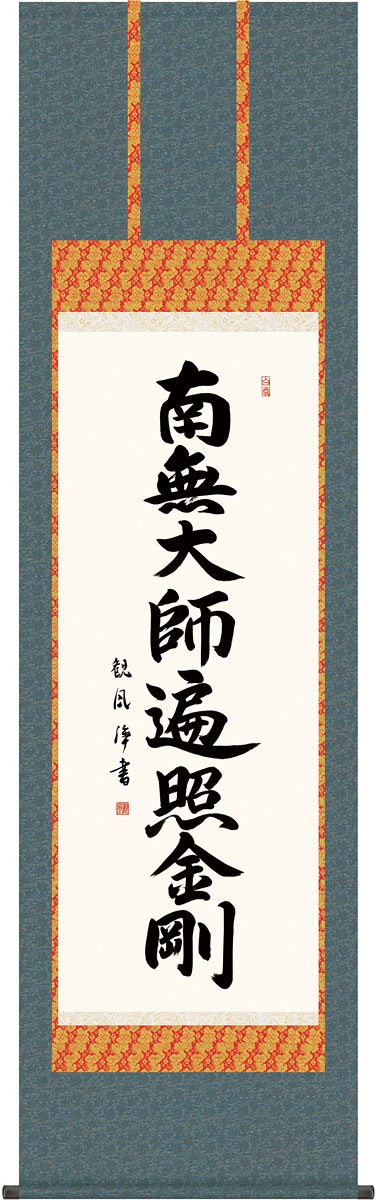 南無大師遍照金剛
観風
書